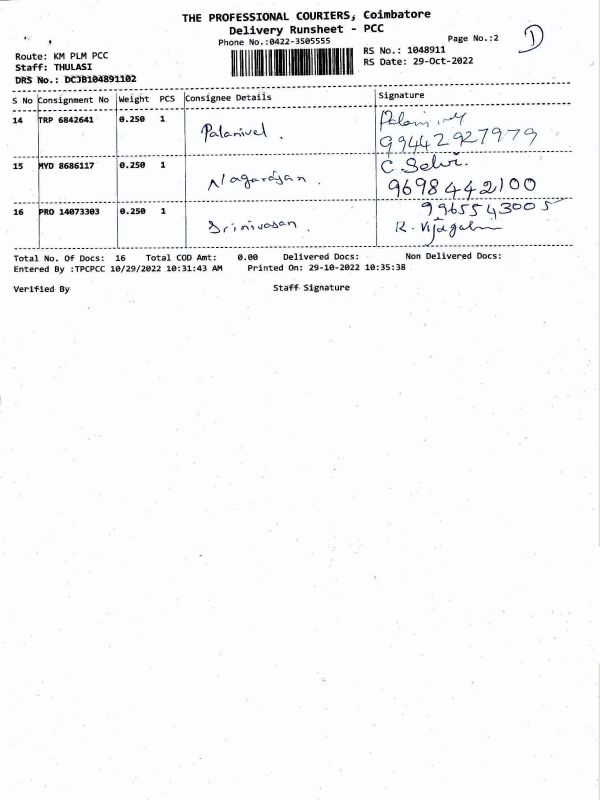 THE PROFESSIONAL COURIERS, Coimbatore
Delivery Runsheet - PCC
Phone No.:0422-3505555
Page No.:2
1
Route: KM PLM PCC
RS No.: 1048911
Staff: THULASI
RS Date: 29-Oct-2022
DRS No.: DCJB104891102
S No Consignment No Weight PCS Consignee Details Signature
14 TRP 6842641 0.250 1 Palanivel.
99442927979
15 MYD 8686117 0.250 1 Nagarajan. C Selvi.
9698442100
16 PRO 14073303 0.250 1 Srinivasan. 9965543005
K. 
Total No. Of Docs: 16 Total COD Amt: 0.00 Delivered Docs: Non Delivered Docs:
Entered By :TPCPCC 10/29/2022 10:31:43 AM Printed On: 29-10-2022 10:35:38
Verified By Staff Signature